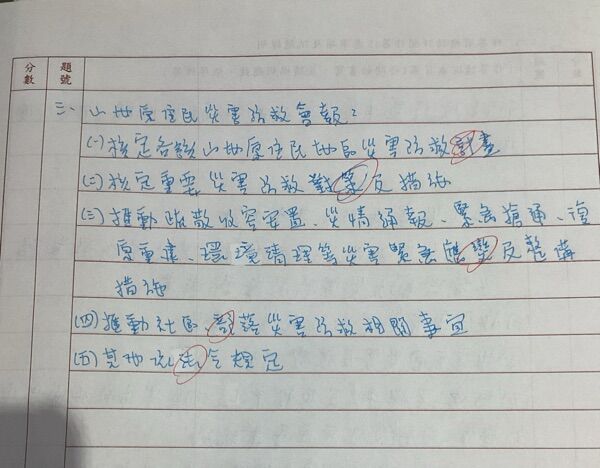 分數
題號
三、山地原住民災害防救會報:
(一)核定各該山地原住民地區災害防救計畫
(二)核定重要災害防救對策及措施
(三)推動疏散收容安置、災情通報、緊急搶通、復
原重建、環境清理等災害緊急應變及整備
措施
(四)推動社區、部落災害防救相關事宜
(五)其他依法令規定